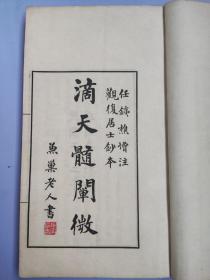 任鐵樵增注
觀復居士鈔本
滴天髓闡微
燕巢老人書